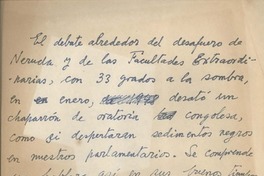 El debate alrededor del desafuero de
Neruda y de las Facultades Extraordi-
narias, con 33 grados a la sombra,
en enero, desató un
chaparrón de oratoria congolesa,
como si despertaran sedimentos negros
en nuestros parlamentarios. Se comprende